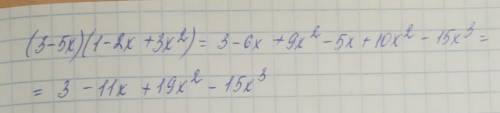 (3-5x)(1-2x+3x²)= 3-6x+9x²-5x+10x²-15x³=
= 3 -11x +19x² -15x³